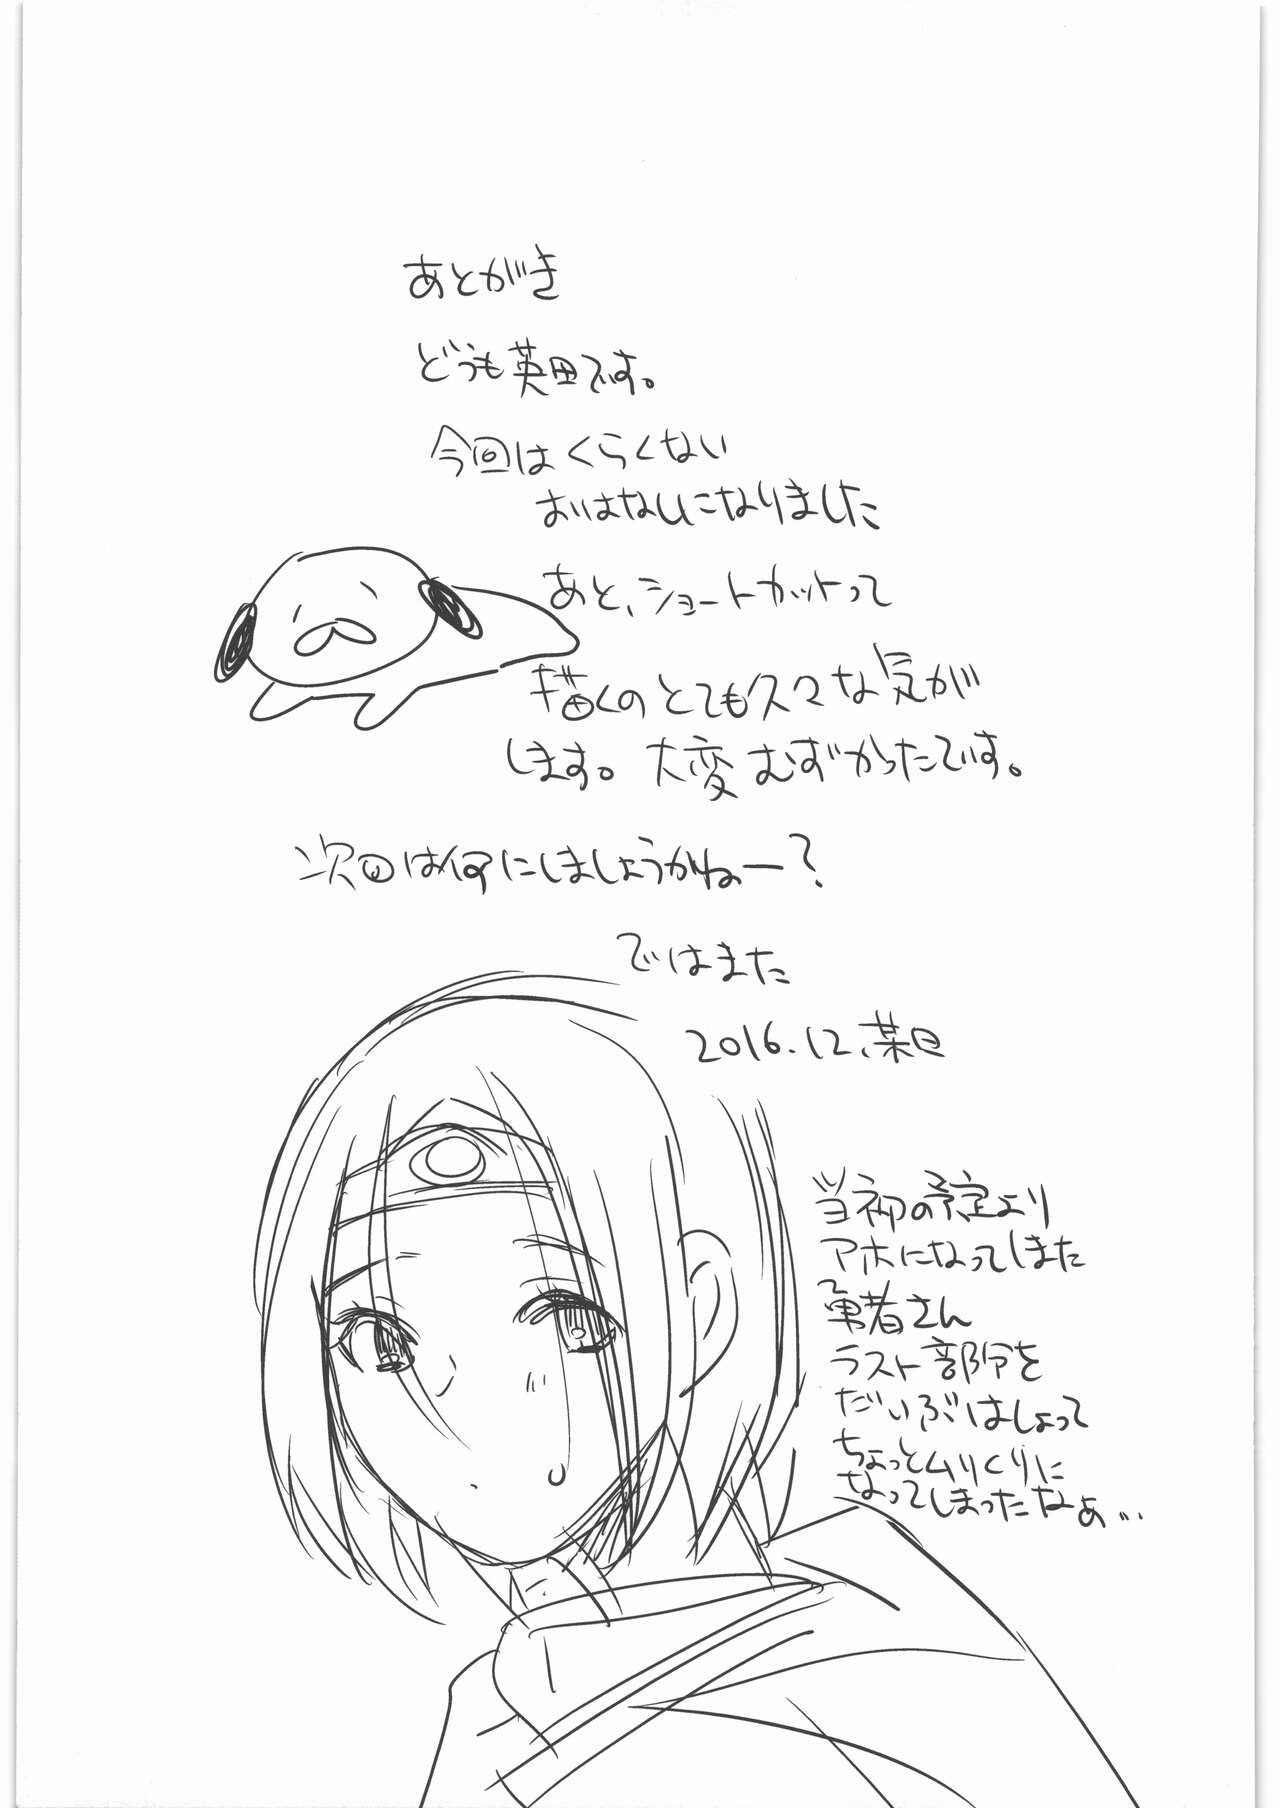 あとがき
どうも英田です。
今回はくらくない
おはなしになりました
あと、ショートカットって
描くのとても久々な気が
します。大変むずかったです。
次回は何にしましょうかねー?
ではまた
2016.12.某日
当初の予定より
アホになってしまた
勇者さん
ラスト部分を
だいぶはしょって
ちょっとムリくりに
なってしまったなぁ…